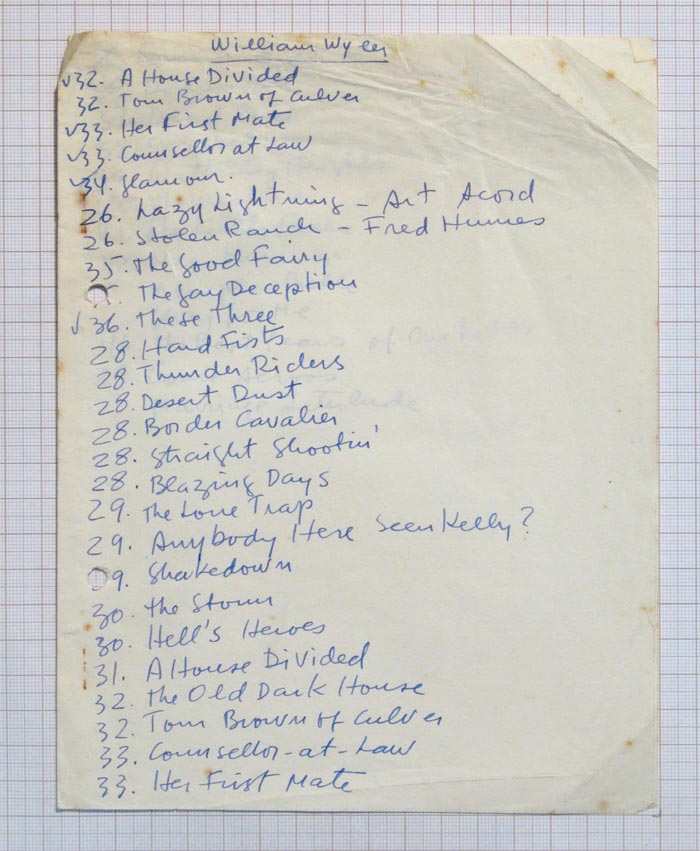 William Wyler
✓32. A House Divided
32. Tom Brown of Culver
✓33. Her First Mate
✓33. Counsellor at Law
✓34. Glamour.
26. Lazy Lightning - Art Acord
26. Stolen Ranch - Fred Humes
35. The Good Fairy
5. The Gay Deception
✓36. These Three
28. Hard Fists
28. Thunder Riders
28. Desert Dust
28. Border Cavalier
28. Straight Shootin'
28. Blazing Days
29. The Love Trap
29. Anybody Here Seen Kelly?
9. Shakedown
30. The Storm
30. Hell's Heroes
31. A House Divided
32. The Old Dark House
32. Tom Brown of Culver
33. Counsellor-at-Law
33. Her First Mate